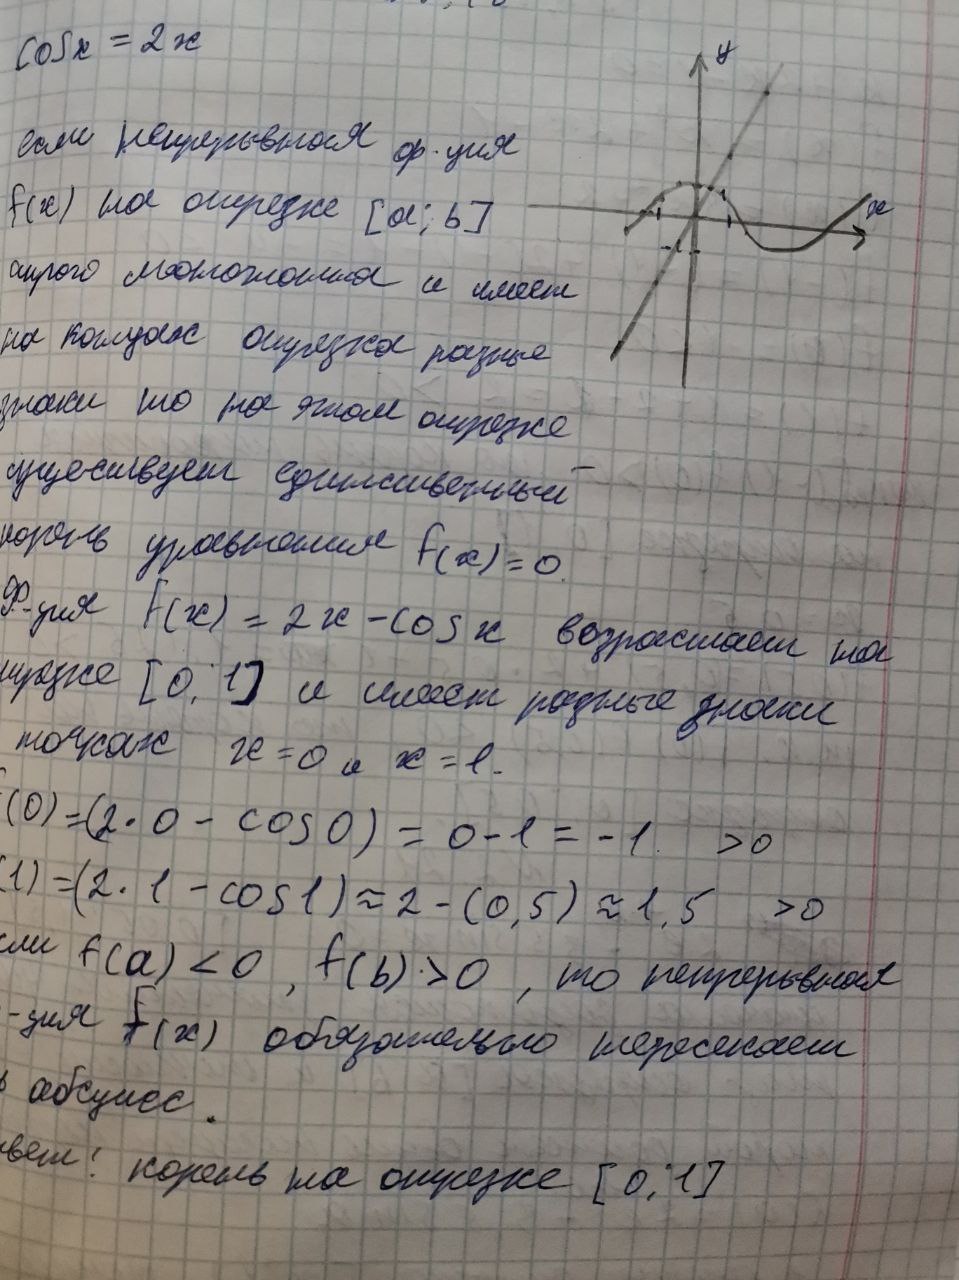 cosx = 2x
y
x
если непрерывная ф-ция
f(x) на отрезке [a; b]
строго монотонна и имеет
на концах отрезка разные
знаки то на этом отрезке
существует единственный
корень уравнения f(x)=0.
Ф-ция f(x) = 2x - cosx возрастает на
отрезке [0; 1] и имеет разные знаки
точках x=0 и x=1.
f(0)=(2·0 - cos0) = 0-1 = -1. >0
(1)=(2·1 - cos1) ≈ 2-(0,5) ≈ 1,5 >0
сли f(a) < 0, f(b) > 0, то непрерывная
-ция f(x) обязательно пересекает
ь абсцисс.
твет: корень на отрезке [0; 1]